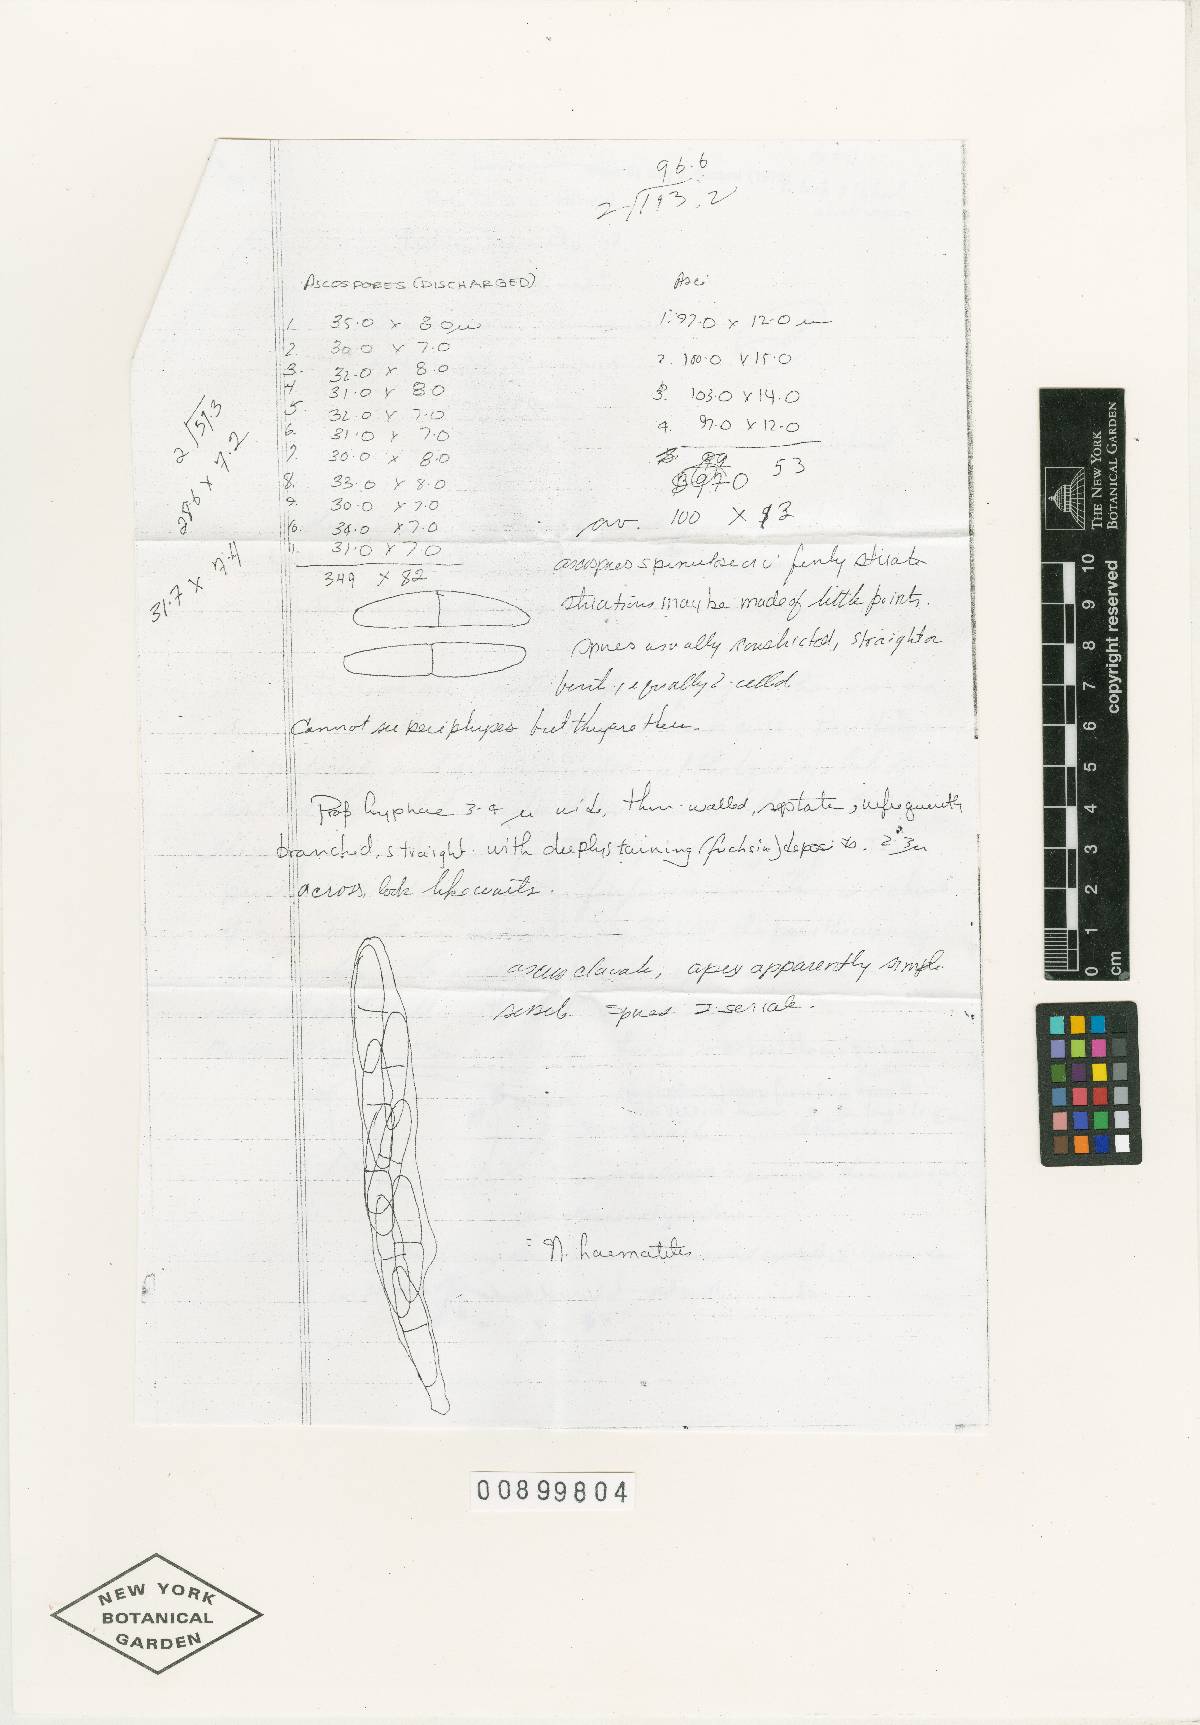 96.6
2 √193.2
ASCOSPORES (DISCHARGED)
1. 35.0 x 8.0 μ
2. 30.0 x 7.0
3. 32.0 x 8.0
4. 31.0 x 8.0
5. 32.0 x 7.0
6. 31.0 x 7.0
7. 30.0 x 8.0
8. 33.0 x 8.0
9. 30.0 x 7.0
10. 34.0 x 7.0
11. 31.0 x 7.0
349 x 82
Asci
1. 97.0 x 12.0 μ
2. 100.0 x 15.0
3. 103.0 x 14.0
4. 97.0 x 12.0
53
av. 100 x 13
2 √57.3
28.6 x 7.2
31.7 x 7.4
finely striate
striations may be made of little points.
spores usually constricted, straight or
bent, equally 2-celled
Cannot see periphyses but they are there.
hyphae 3-4 μ wide, thin-walled, septate, infrequently
branched, straight with deeply staining (fuchsia) deposits. 2-3 μ
across, look like warts.
ascus clavate, apex apparently simple
spores 2-serial.
= N. haematites
00899804
NEW YORK
BOTANICAL
GARDEN
THE NEW YORK
BOTANICAL GARDEN
copyright reserved
0 1 2 3 4 5 6 7 8 9 10
cm